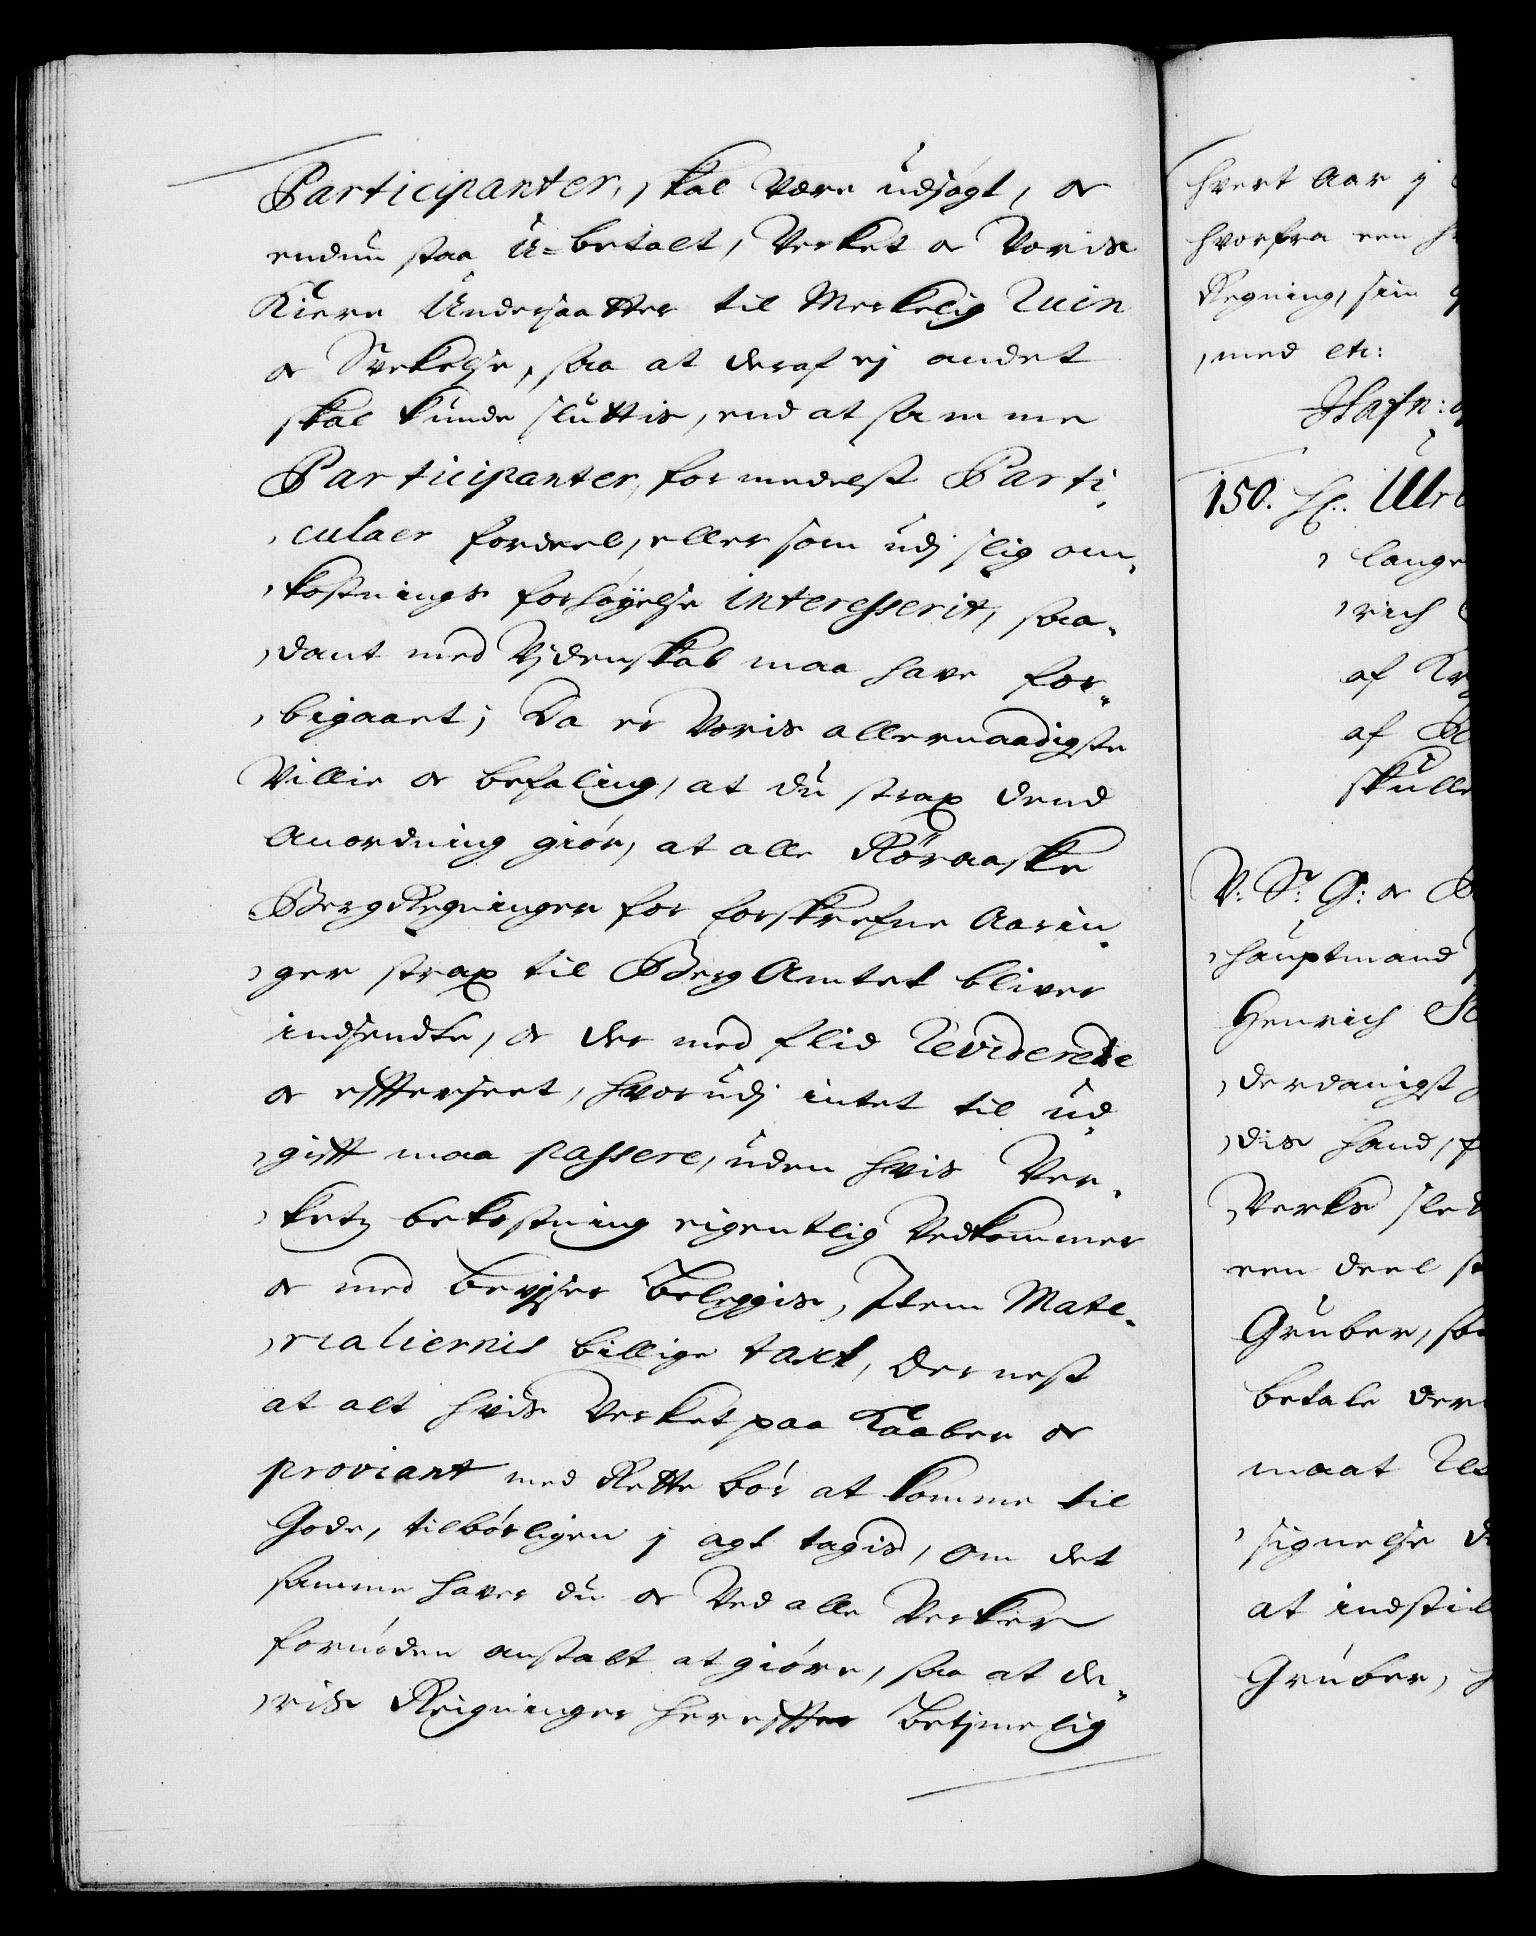 Participanter, skal være udsøgt, og
endnu staa u-betalt, Verket og Voris
Kiere Undersaatter til Merkelig Ruin
og Svekelse, saa at deraf ej andet
skal kunde sluttis, end at samme
Participanter, formedelst Parti,
,culaer fordeel, eller som udj slig om,
,kostnings forhøyelse interesserit, saa,
,dant med Videnskab maa have for,
,bigaaet; Da er Voris allernaadigste
Villie og befaling, at du strax dend
Anordning giør, at alle Røraaske
BergRegninger for forskrefne Aarin,
,ger strax til Berg Amtet bliver
indsendte, og der med flid Reviderede
og effterseet, hvorudj intet til ud,
,gifft maa passere, uden hvis Ver,
,ketz bekostning eigentlig Vedkommer
og med beviser beleggis, Item Mate,
,rialiernis billige taxt, Der nest
at alt hvis Verket paa Kaaber og
proviant med Rette bør at komme til
Gode, tilbørligen j agt tagis, Om det
samme haver du og Ved alle Verker
fornøden anstalt at giøre, saa at de,
,ris Reigninger hereffter betimelig
hvert Aar j
hvorfra een
Regning, sin
,med etc:
Hafn:
150. Hr. Ulr
,lange
,rich
af
af
skulle
V: Sr. G: og
,hauptmand
Henrich
,derdanigst
,dis hand,
Verks slet
een deel
Gruber,
betale der
maat
,signelse
at indstil
Gruber,